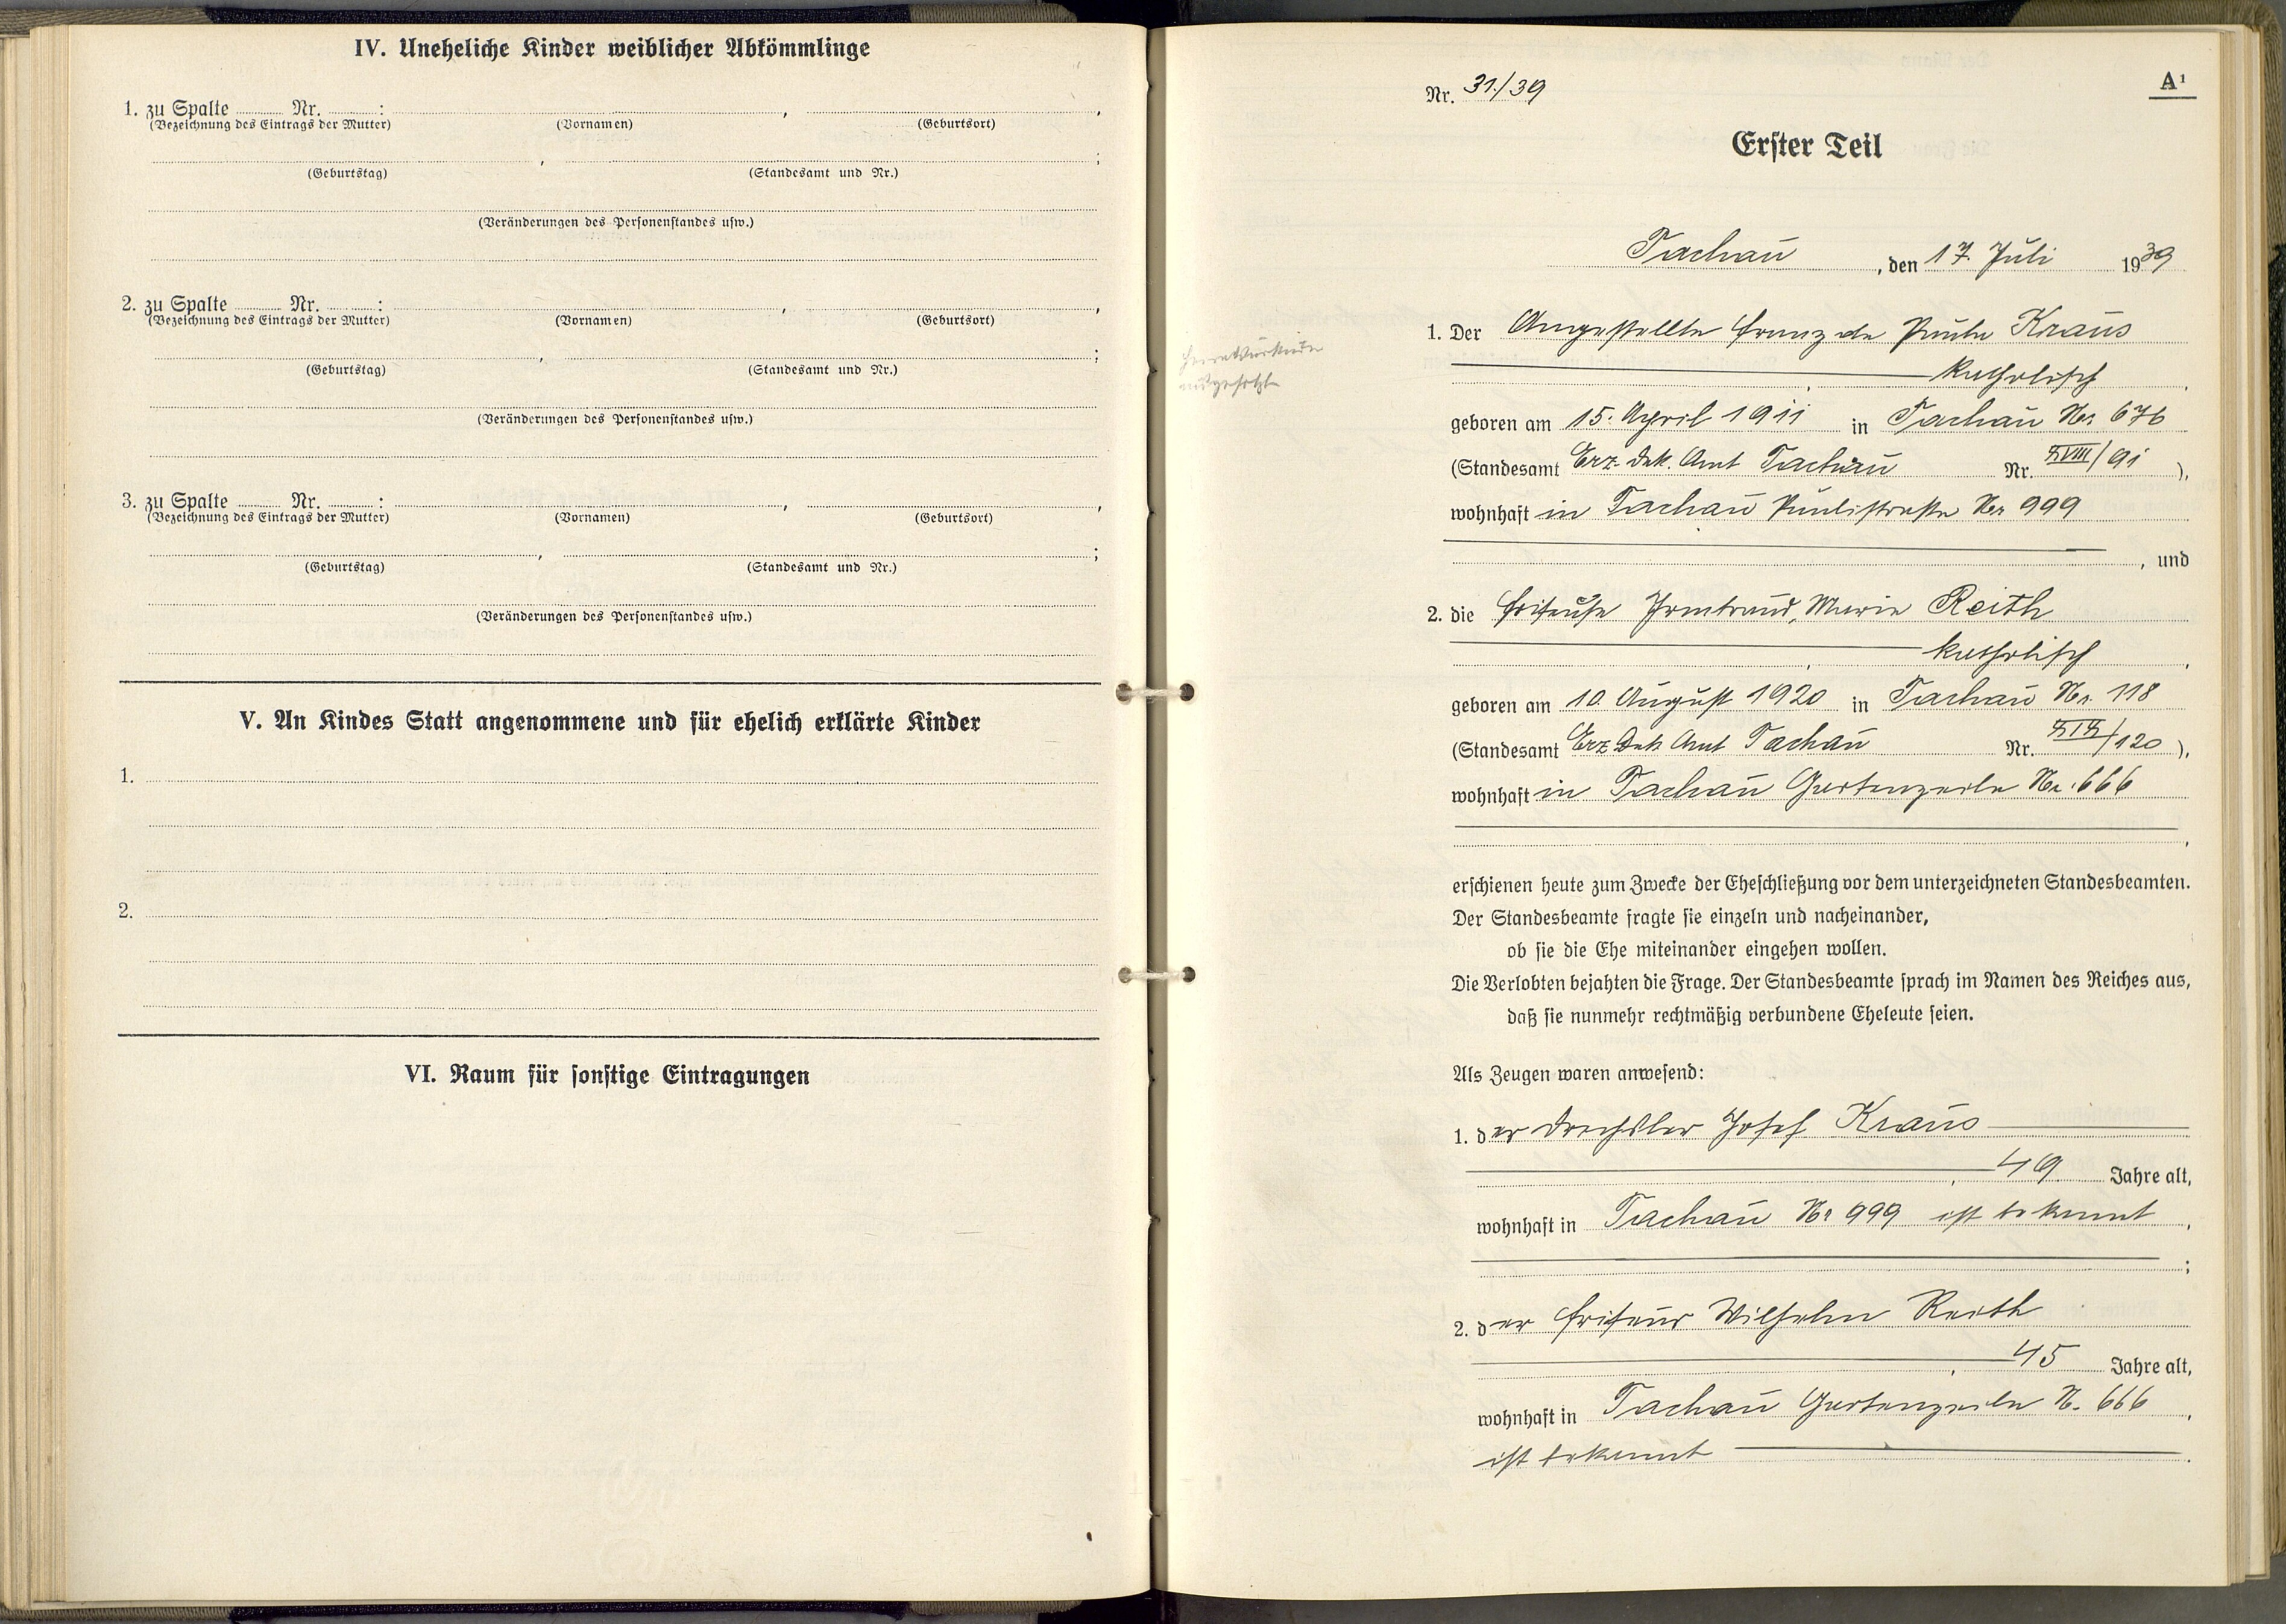 IV. Uneheliche Kinder weiblicher Abkömmlinge
1. zu Spalte ........ Nr. ........ : ........ , ........ ,
(Bezeichnung des Eintrags der Mutter) (Vornamen) (Geburtsort)
........ , ........ ;
(Geburtstag) (Standesamt und Nr.)
(Veränderungen des Personenstandes usw.)
2. zu Spalte ........ Nr. ........ : ........ , ........ ,
(Bezeichnung des Eintrags der Mutter) (Vornamen) (Geburtsort)
........ , ........ ;
(Geburtstag) (Standesamt und Nr.)
(Veränderungen des Personenstandes usw.)
3. zu Spalte ........ Nr. ........ : ........ , ........ ,
(Bezeichnung des Eintrags der Mutter) (Vornamen) (Geburtsort)
........ , ........ ;
(Geburtstag) (Standesamt und Nr.)
(Veränderungen des Personenstandes usw.)
V. An Kindes Statt angenommene und für ehelich erklärte Kinder
1.
2.
VI. Raum für sonstige Eintragungen
A¹
Nr. 31./39
Erster Teil
Tachau, den 17. Juli 1939
1. Der Angestellte Franz de Paula Kraus
katholisch,
geboren am 15. April 1911 in Tachau Nr. 676
(Standesamt Erz. Dek. Amt Tachau Nr. XVIII/91),
wohnhaft in Tachau Paulistraße Nr 999
, und
2. die Friseuse Irmtraud, Maria Reith
katholisch,
geboren am 10. August 1920 in Tachau Nr. 118
(Standesamt Erz. Dek. Amt Tachau Nr. XIX/120),
wohnhaft in Tachau Gartenzeile Nr. 666
,
erschienen heute zum Zwecke der Eheschließung vor dem unterzeichneten Standesbeamten.
Der Standesbeamte fragte sie einzeln und nacheinander,
ob sie die Ehe miteinander eingehen wollen.
Die Verlobten bejahten die Frage. Der Standesbeamte sprach im Namen des Reiches aus,
daß sie nunmehr rechtmäßig verbundene Eheleute seien.
Als Zeugen waren anwesend:
1. der Drechsler Josef Kraus
, 49 Jahre alt,
wohnhaft in Tachau Nr 999 ist bekannt,
;
2. der Friseur Wilhelm Reith
, 45 Jahre alt,
wohnhaft in Tachau Gartenzeile N. 666,
ist bekannt.